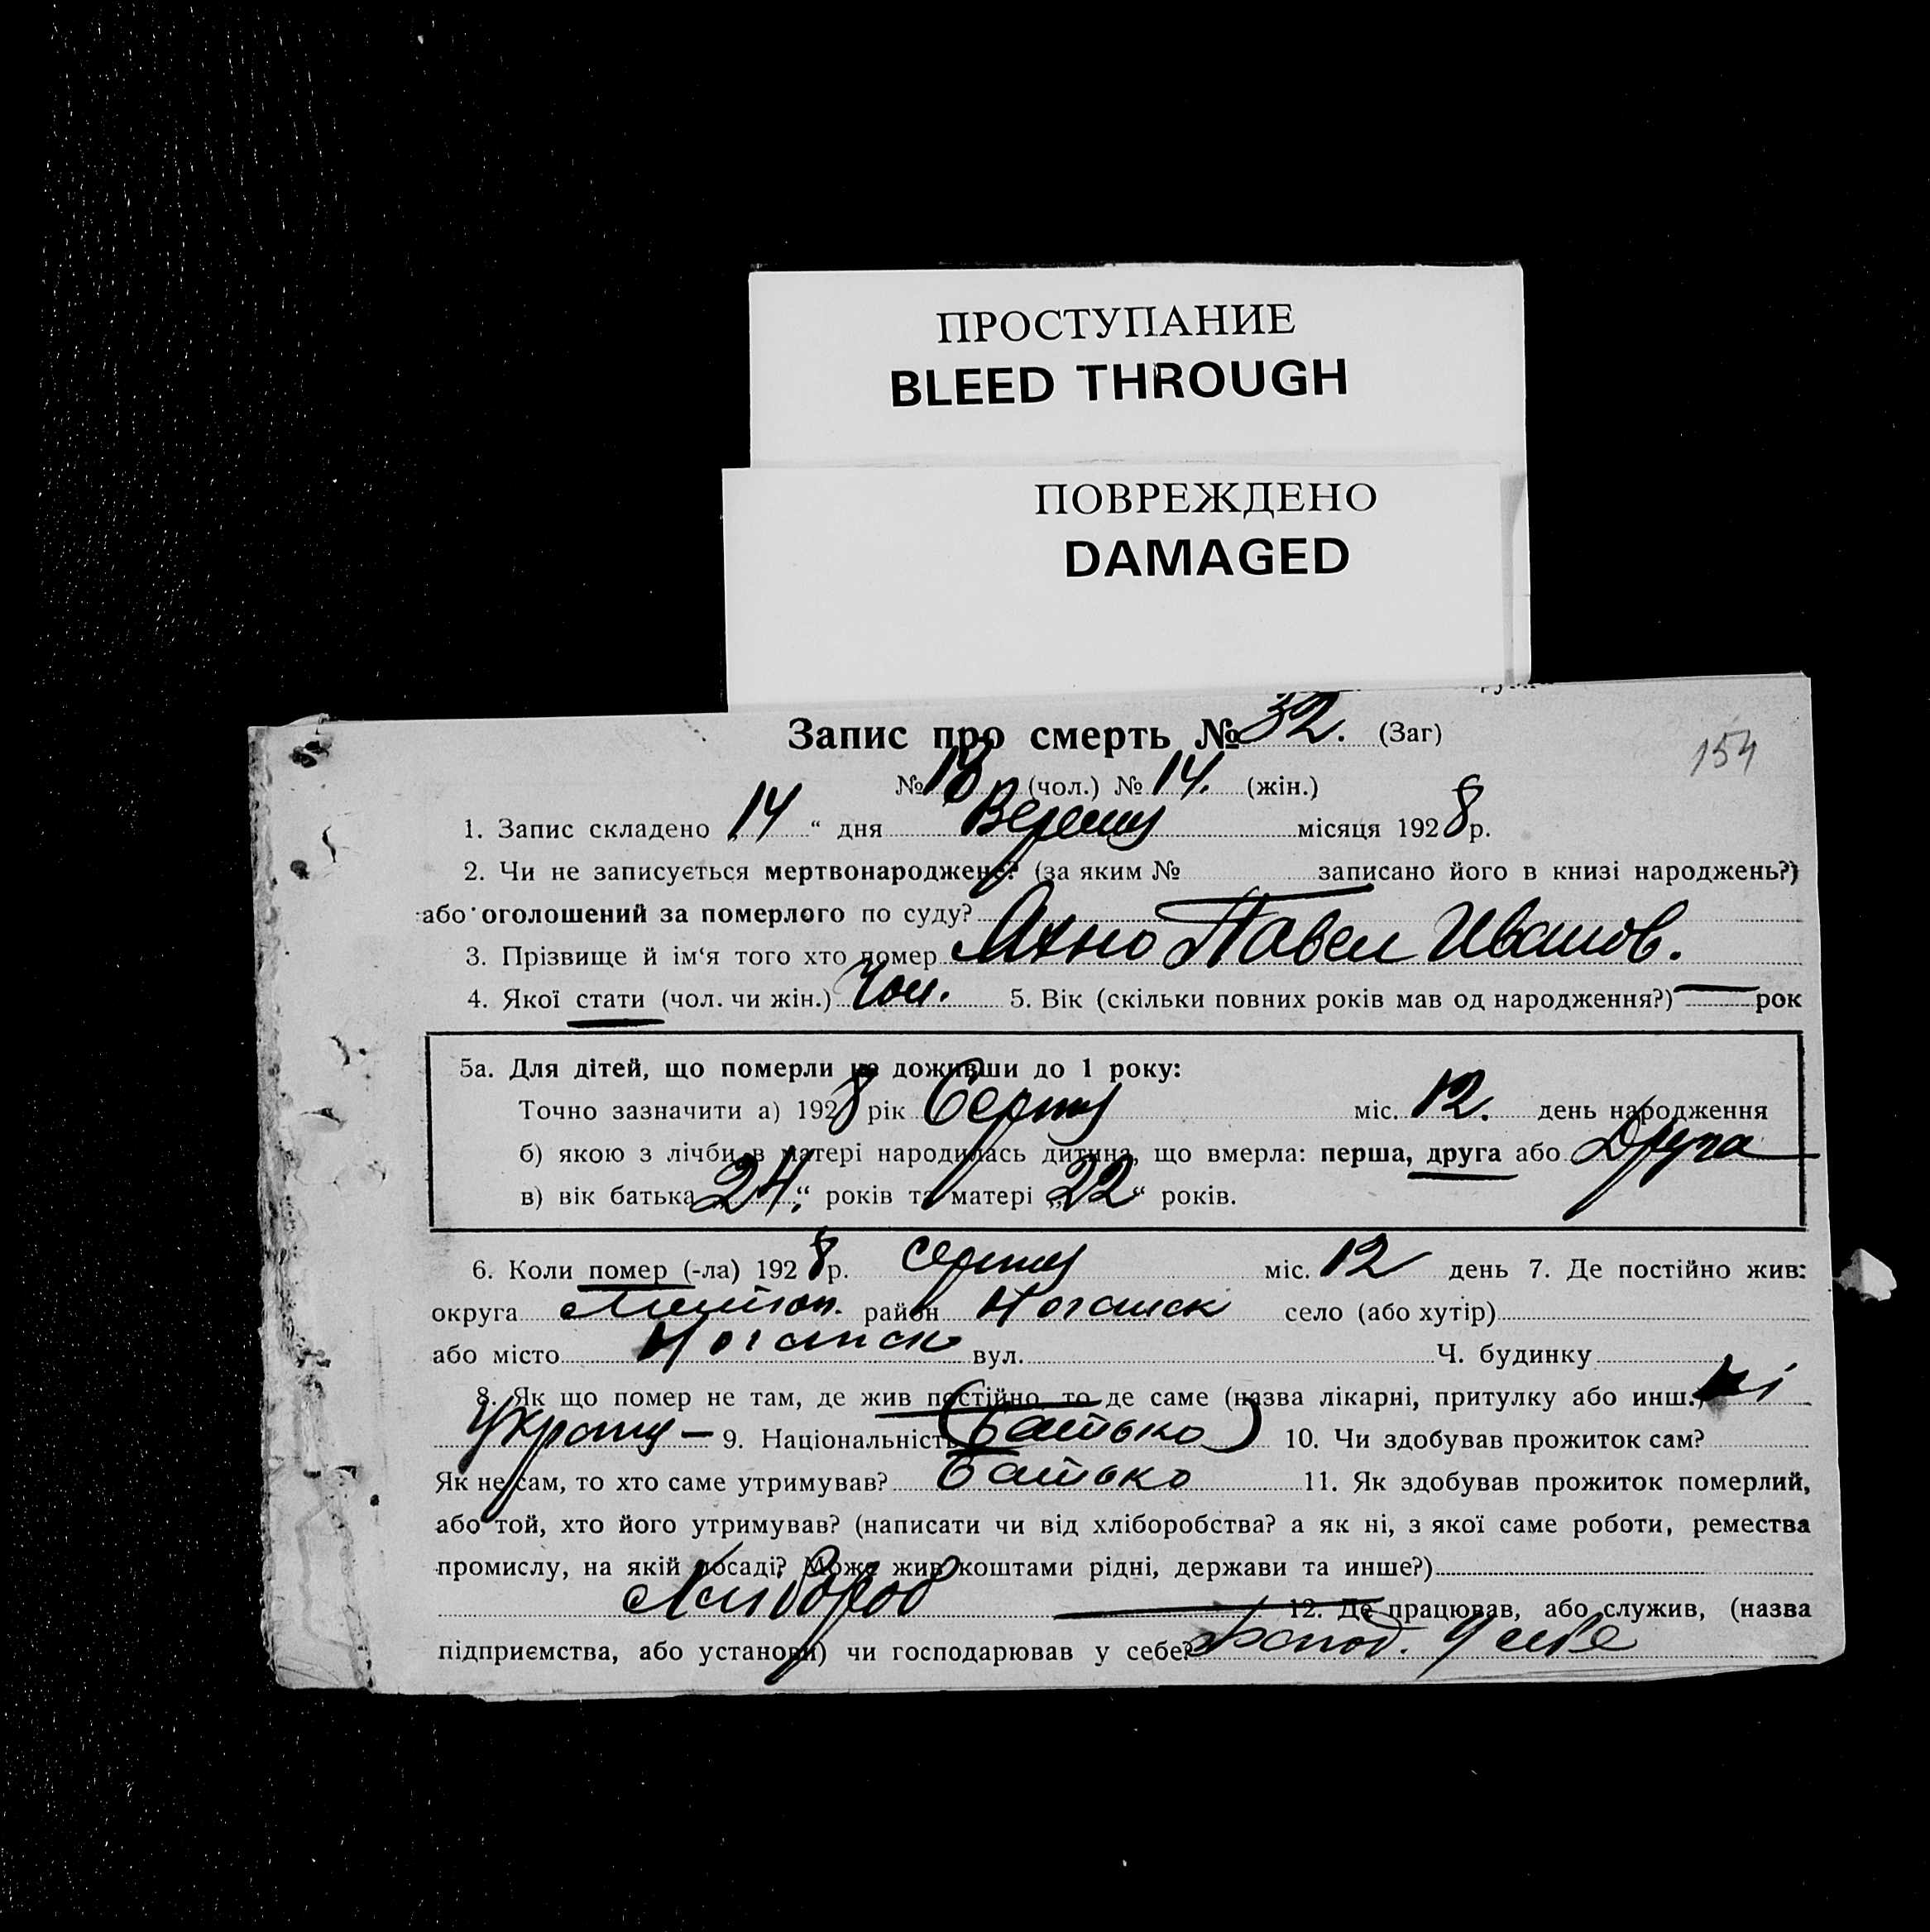 ПРОСТУПАНИЕ
BLEED THROUGH
ПОВРЕЖДЕНО
DAMAGED
Запис про смерть № 32. (Заг)
154
№ 18 (чол.) № 14. (жін.)
1. Запис складено „14“ дня Вересня місяця 1928 р.
2. Чи не записується мертвонароджене? (за яким № записано його в книзі народжень?)
або оголошений за померлого по суду?
3. Прізвище й ім‘я того хто помер Махно Павел Иванов.
4. Якої стати (чол. чи жін.) Чол. 5. Вік (скільки повних років мав од народження?) — рок
5а. Для дітей, що померли не доживши до 1 року:
Точно зазначити а) 1928 рік Серпня міс. 12. день народження
б) якою з лічби в матері народилась дитина, що вмерла: перша, друга або Друга
в) вік батька „24“ років та матері „22“ років.
6. Коли помер (-ла) 1928 р. Серпня міс. 12 день 7. Де постійно жив:
округа район Ногайск село (або хутір)
або місто Ногайск вул. Ч. будинку
8. Як що помер не там, де жив постійно, то де саме (назва лікарні, притулку або инш.) ні
9. Національність (Батько) 10. Чи здобував прожиток сам?
Як не сам, то хто саме утримував? Батько 11. Як здобував прожиток померлий,
або той, хто його утримував? (написати чи від хліборобства? а як ні, з якої саме роботи, ремества
промислу, на якій посаді? Може жив коштами рідні, держави та инше?)
Хлібороб 12. Де працював, або служив, (назва
підприємства, або установи) чи господарював у себе? У себе